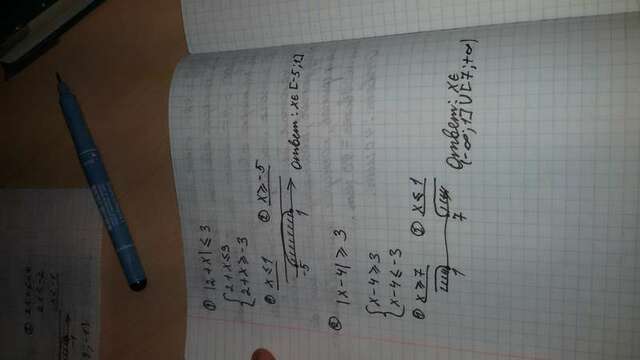 ① |2+x| ≤ 3
{2+x≤3
{2+x≥-3
① x≤1 ② x≥-5
-5 1
Ответ: x∈[-5;1]
② |x-4| ≥ 3
{x-4≥3
{x-4≤-3
① x≥7 ② x≤1
1 7
Ответ: x∈
(-∞;1]∪[7;+∞)